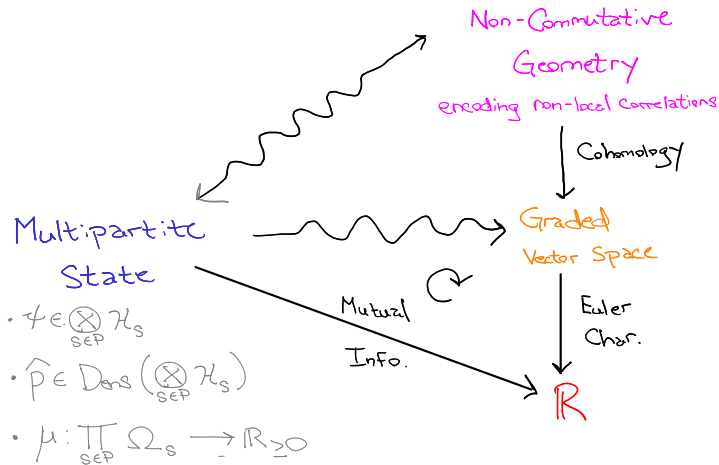 Non-Commutative
Geometry
encoding non-local correlations
Cohomology
Multipartite
State
Graded
Vector Space
Mutual
Info.
Euler
Char.
ℝ
• ψ ∈ ⊗_{s∈P} ℋ_s
• ρ̂ ∈ Dens(⊗_{s∈P} ℋ_s)
• μ : ∏_{s∈P} Ω_s → ℝ_{≥0}